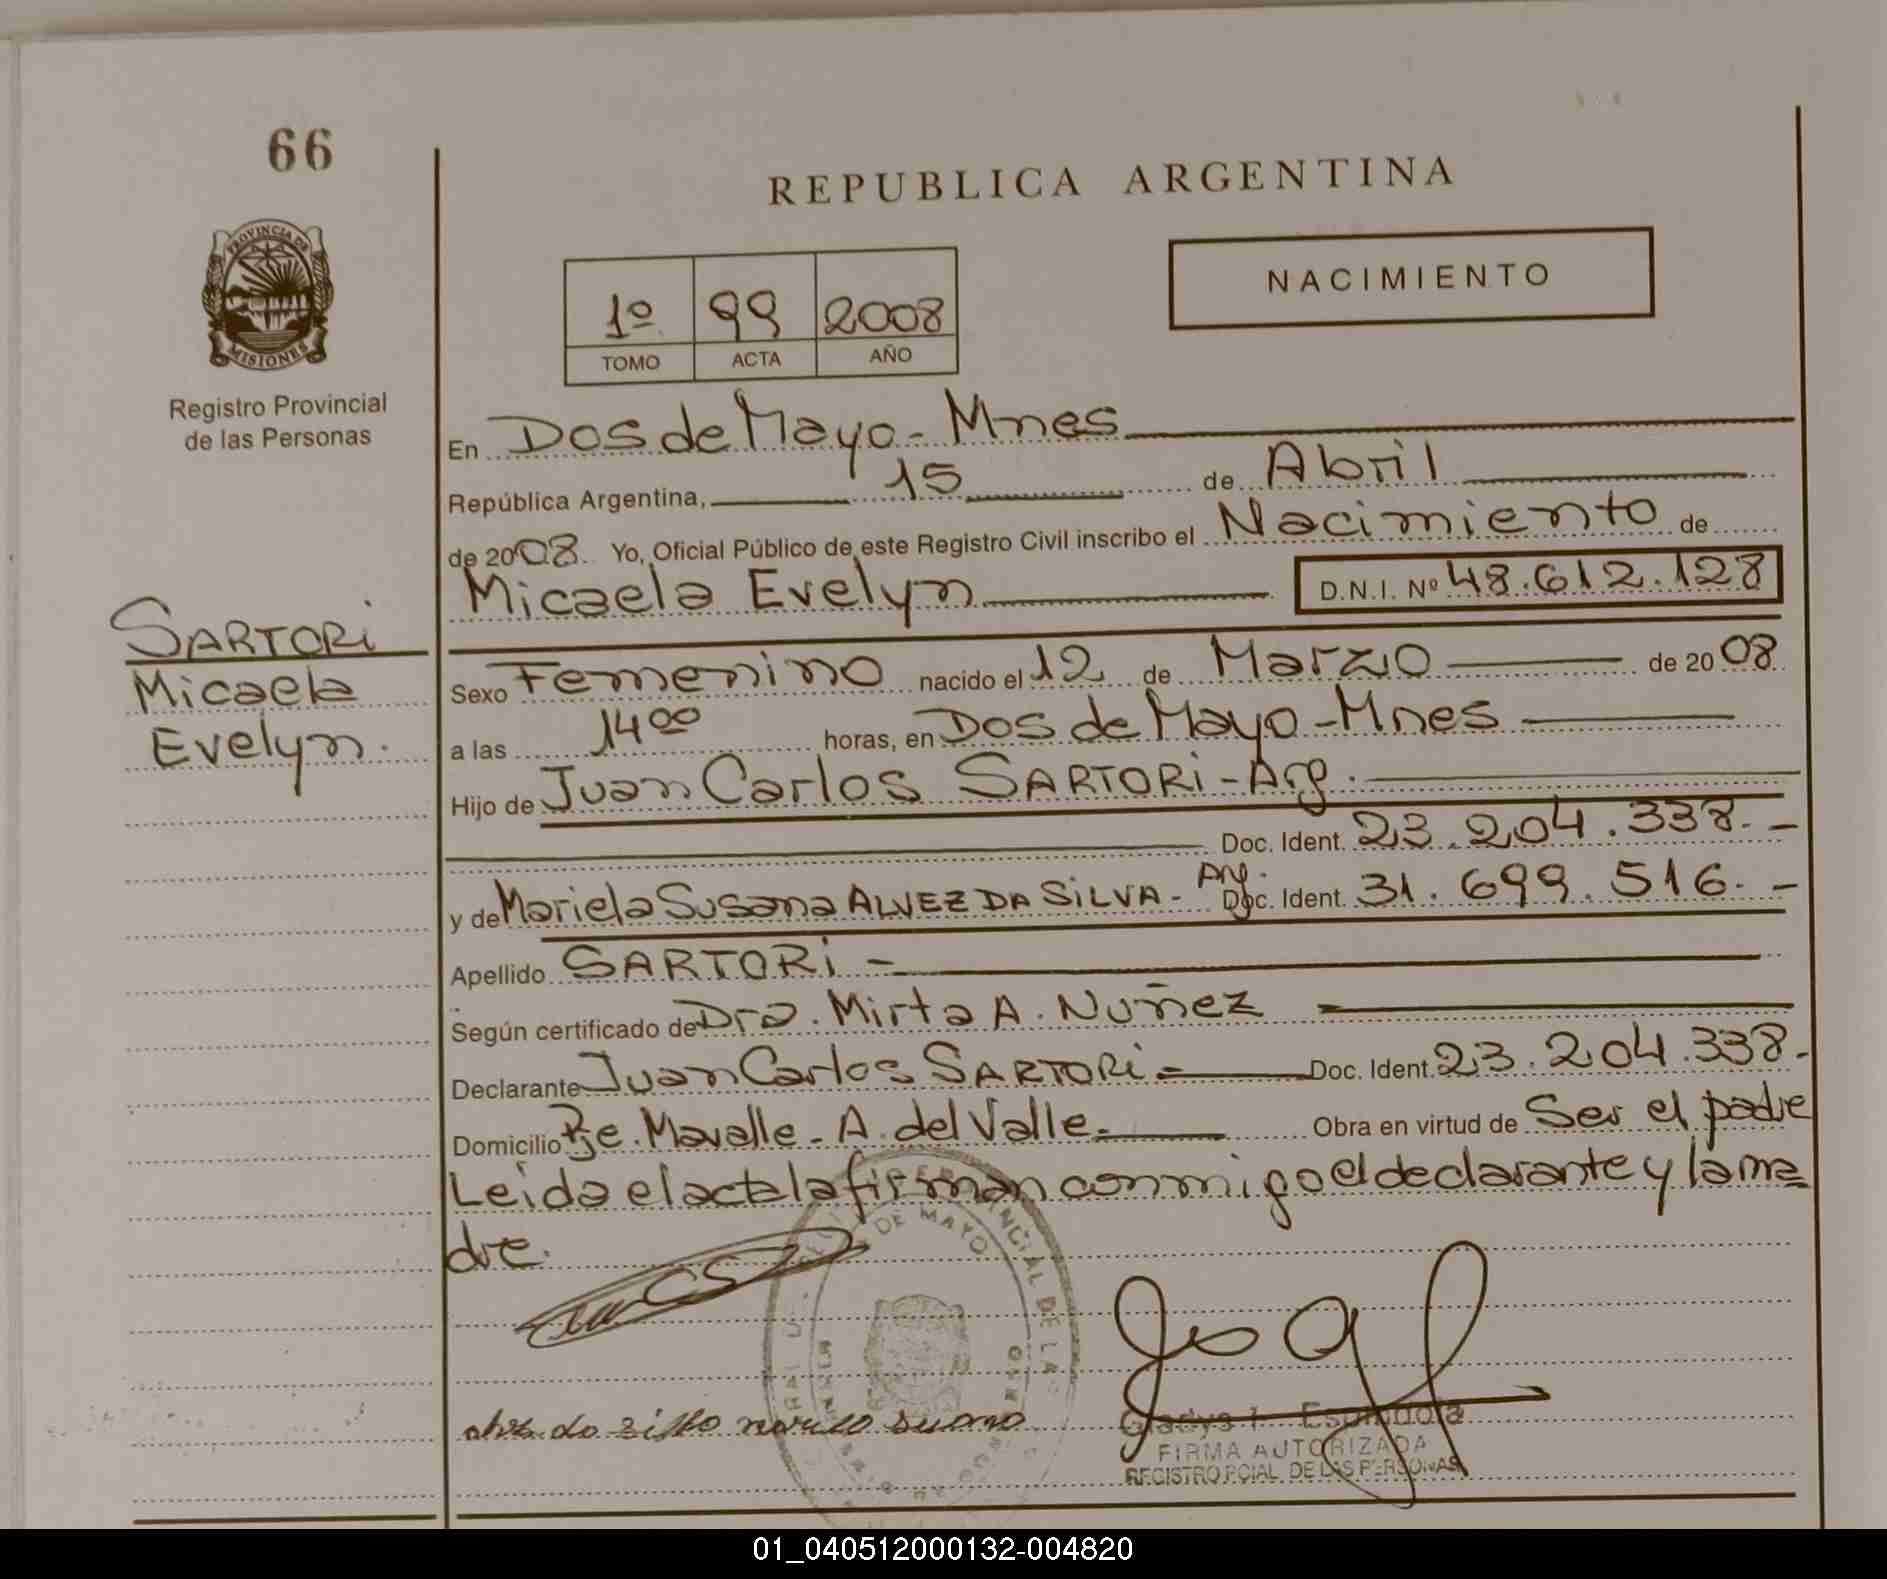 66
REPUBLICA ARGENTINA
NACIMIENTO
1º 99 2008
TOMO ACTA AÑO
PROVINCIA DE
MISIONES
Registro Provincial
de las Personas
En Dos de Mayo - Mnes
República Argentina, 15 de Abril
de 2008. Yo, Oficial Público de este Registro Civil inscribo el Nacimiento de
Micaela Evelyn D.N.I. Nº 48.612.128
SARTORi
Micaela
Evelyn.
Sexo Femenino nacido el 12 de Marzo de 20 08
a las 14 00 horas, en Dos de Mayo - Mnes
Hijo de Juan Carlos SARTORi - Arg.
Doc. Ident. 23.204.338. -
y de Mariela Susana ALVEZ DA SiLVA - Arg. Doc. Ident. 31.699.516. -
Apellido SARTORi -
Según certificado de Dra. Mirta A. Nuñez
Declarante Juan Carlos SARTORi - Doc. Ident. 23.204.338.-
Domicilio Pje. Mavalle - A. del Valle. Obra en virtud de Ser el padre
Leida el acta la firman conmigo el declarante y la ma
dre.
DE MAYO
DE LAS
FIRMA AUTORIZADA
REGISTRO PCIAL. DE LAS PERSONAS
01_040512000132-004820